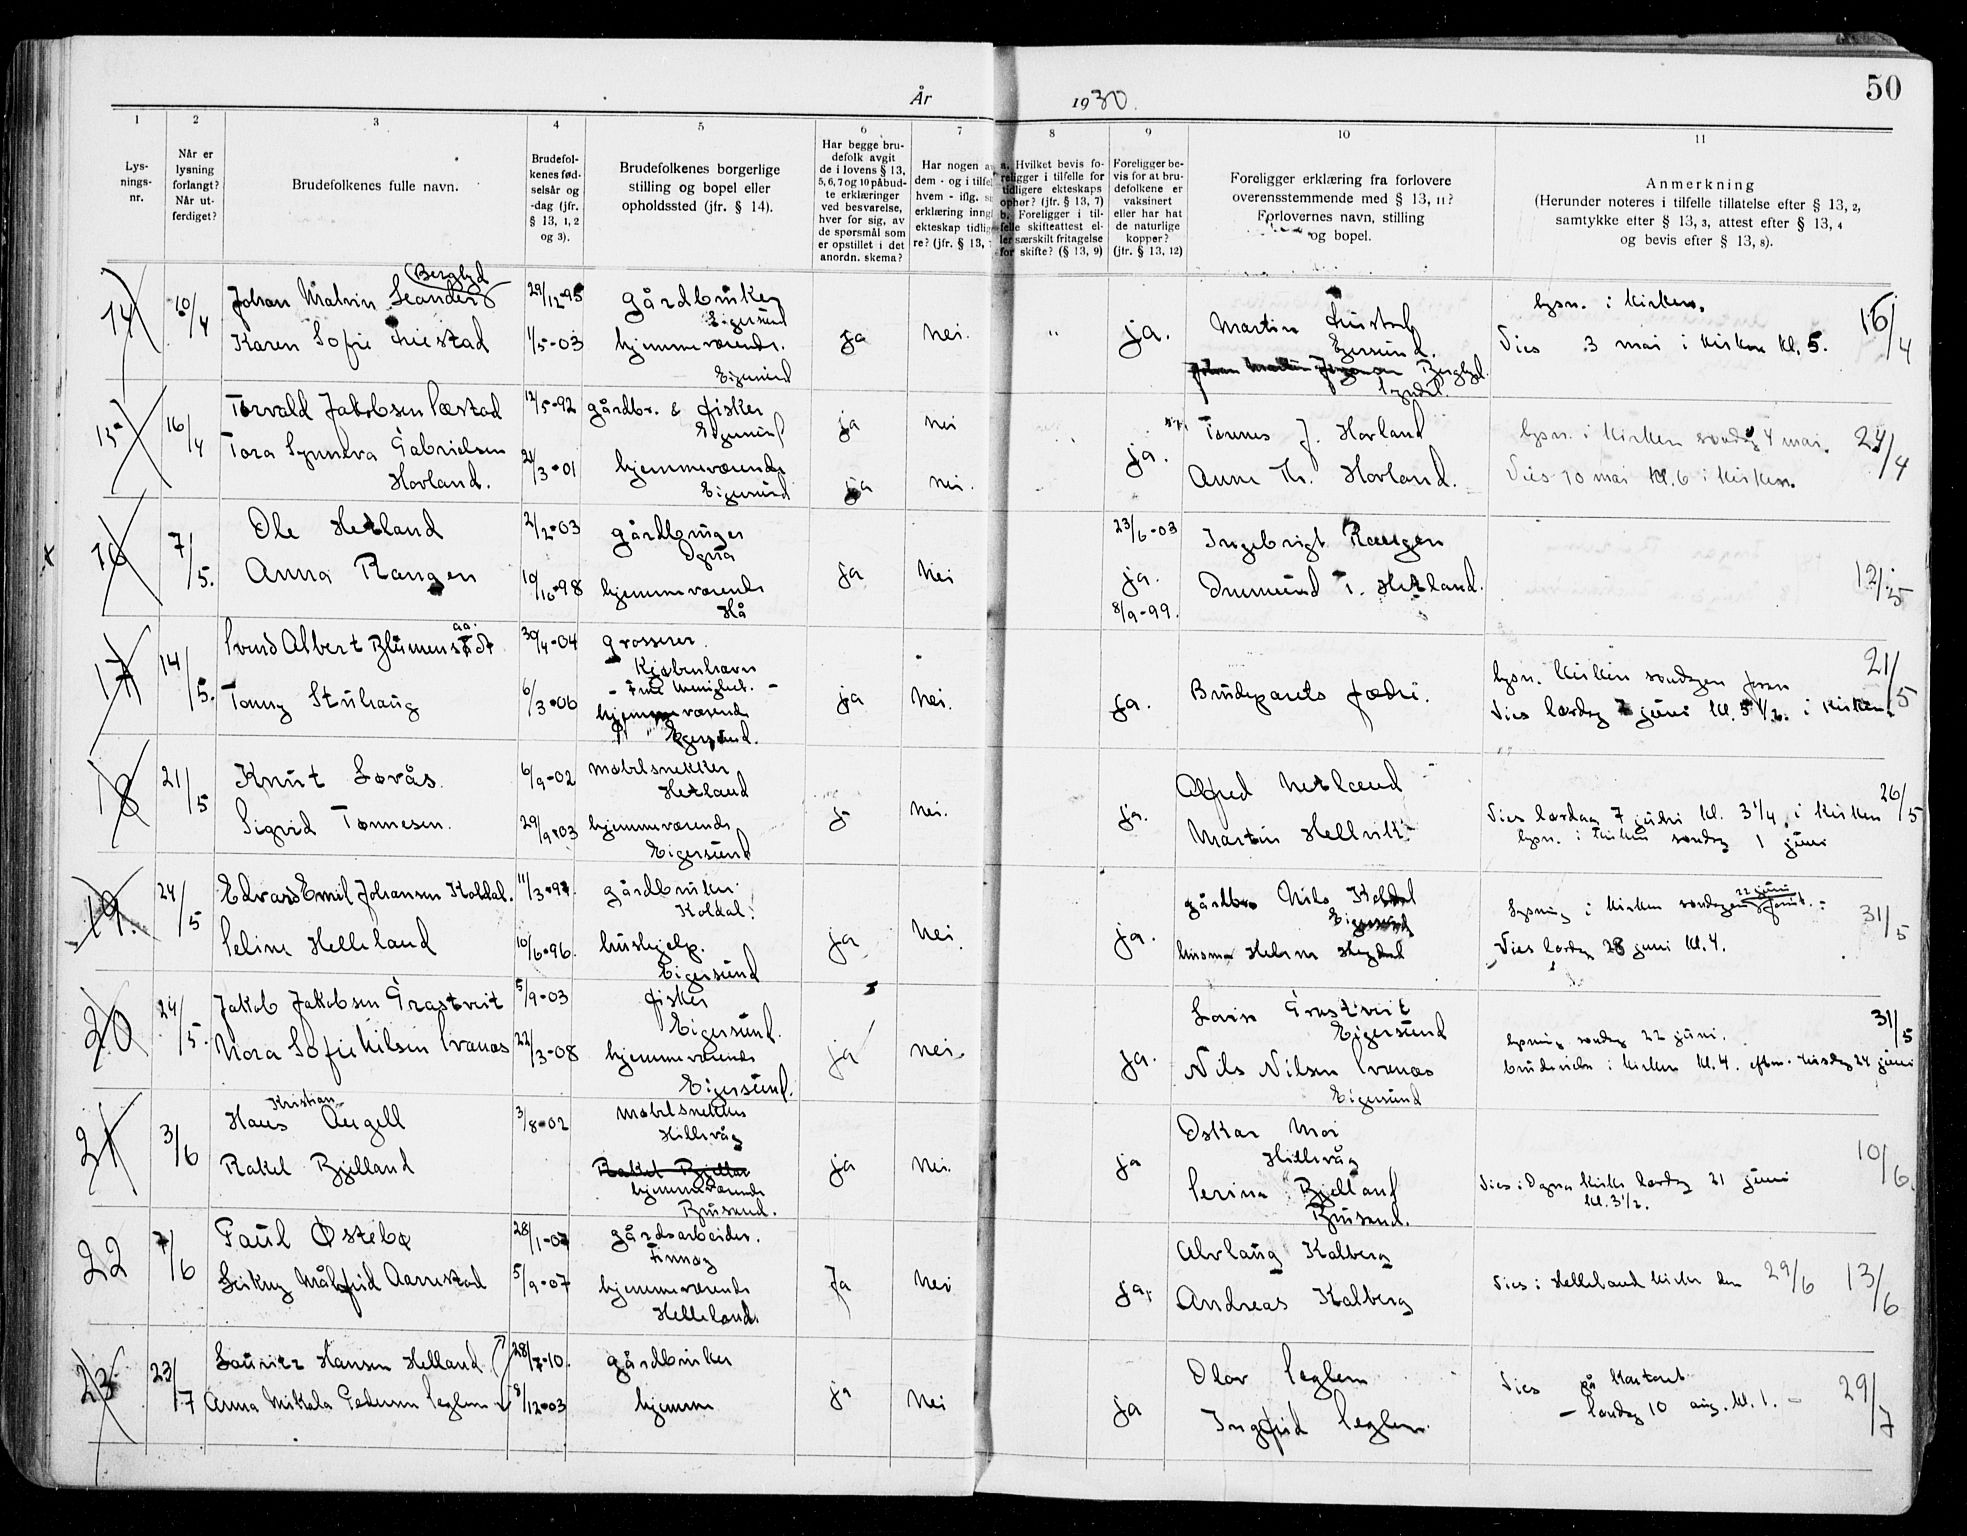 50
År 1930.
1 2 3 4 5 6 7 8 9 10 11
Lysnings-nr.
Når er lysning forlangt? Når utferdiget?
Brudefolkenes fulle navn.
Brudefolkenes fødselsår og -dag (jfr. § 13, 1, 2 og 3).
Brudefolkenes borgerlige stilling og bopel eller opholdssted (jfr. § 14).
Har begge brudefolk avgit de i lovens § 13, 5, 6, 7 og 10 påbudte erklæringer ved besvarelse, hver for sig, av de spørsmål som er opstillet i det anordn. skema?
Har nogen a
dem - og i tilfel
hvem - iflg. s
erklæring inng
ekteskap tidlig
re? (jfr. § 13,
a. Hvilket bevis foreligger i tilfelle for tidligere ekteskaps ophør? (jfr. § 13, 7)
b. Foreligger i tilfelle skifteattest eller særskilt fritagelse for skifte? (§ 13, 9)
Foreligger bevis for at brudefolkene er vaksinert eller har hat de naturlige kopper? (jfr. § 13, 12)
Foreligger erklæring fra forlovere overensstemmende med § 13, 11? Forlovernes navn, stilling og bopel.
Anmerkning
(Herunder noteres i tilfelle tillatelse efter § 13, 2, samtykke efter § 13, 3, attest efter § 13, 4 og bevis efter § 13, 8).
14 10/4 Johan Malvin Leander (Berglyd 29/12-95 gårdbruker Eigersund
Karen Sofie 1/5-03 hjemmeværende. Eigersund ja nei. " ja.
Martin
Egersund.
Berglyd.
Lyndal.
lysn. i kirken.
Vies 3 mai i kirken kl. 5. 16/4
15 16/4 Torvald Jakobsen Sæstad 12/5-92 gårdbr. & fisker Eigersund ja nei
Tora Synnøva Gabrielsen Hovland. 21/3-01 hjemmeværende Eigersund ja nei. ja.
Tønnes J. Hovland
Anne Th. Hovland.
lysn. i kirken søndag 4 mai.
Vies 10 mai kl. 6 i kirken. 24/4
16 7/5. Ole Hetland 2/12-03 gårdbruger Ogna
Anna Rangen 19/10-98 hjemmeværende Hå ja nei
23/6-03 ja. 8/9-99.
Ingebrigt Raugen
T. Hetland.
12/5
17 14/5. Svend Albert Blumens 30/4-04 grosserer. Kjøbenhavn
- Frue menighet. -
Tonny Stuhaug 6/3-06 hjemmeværende Egersund. ja nei. ja.
Brudeparets fædre.
lysn. kirken søndagen foran
Vies lørdag 7 juni kl. 5 1/2. i kirken. 21/5
18 21/5 Knut Sørås. 6/9-02 møbelsnekker Hetland
Sigrid Tønnesen. 29/9-03 hjemmeværende Eigersund ja nei. ja.
Alfred Hetland
Martin Hellvik
Vies lørdag 7 juni kl. 3 1/4. i kirken 26/5
lysn. i kirken søndag 1 juni
19. 24/5 Edvard Emil Johansen Koldal. 11/3-97 gårdbruker Koldal.
Seline Helleland 10/6-96. hushjelp. Eigersund ja nei. ja.
gårdbr. Nils Koldal Eigersund
Lysning i kirken søndagen 22 juni
Vies lørdag 28 juni kl. 4. 31/5
20 24/5. Jakob Jakobsen Grastveit 5/9-03 fisker Eigersund.
Nora Sofie Nilsen Svanæs 22/3-08 hjemmeværende Eigersund. ja nei. ja.
Grastveit Eigersund
Nils Nilsen Svanæs Eigersund
lysning søndag 22 juni.
brudevielse i kirken kl. 4. tirsdag 24 juni 31/5
21 3/6 Hans Kristian Angell 3/8-02 møbelsnekker Hillevåg
Rakel Bjelland Rakel Bjellan hjemmeværende Brusand. ja nei. ja
Oskar Moi Hillevåg
Serina Bjelland Brusand.
Vies i Ogna kirke lørdag 21 juni kl. 3 1/2. 10/6.
22 7/6 Paul Østebø 28/1-07 gårdsarbeider. Finnøy
Målfrid Aarrestad 5/9-07 hjemmeværende Helleland. Ja nei ja,
Alvlaug Kalberg
Andreas Kalberg
Vies i Helleland kirke den 29/6 13/6
23 23/7 Lauritz Hansen Helland 28/7-10. gårdbruker
Anna Mikala Pedersen Seglem 8/12-03 hjemme ja nei ja
Olav Seglem
Ingfrid Seglem.
Vies på kontoret
- lørdag 10 aug. kl. 1. - 29/7